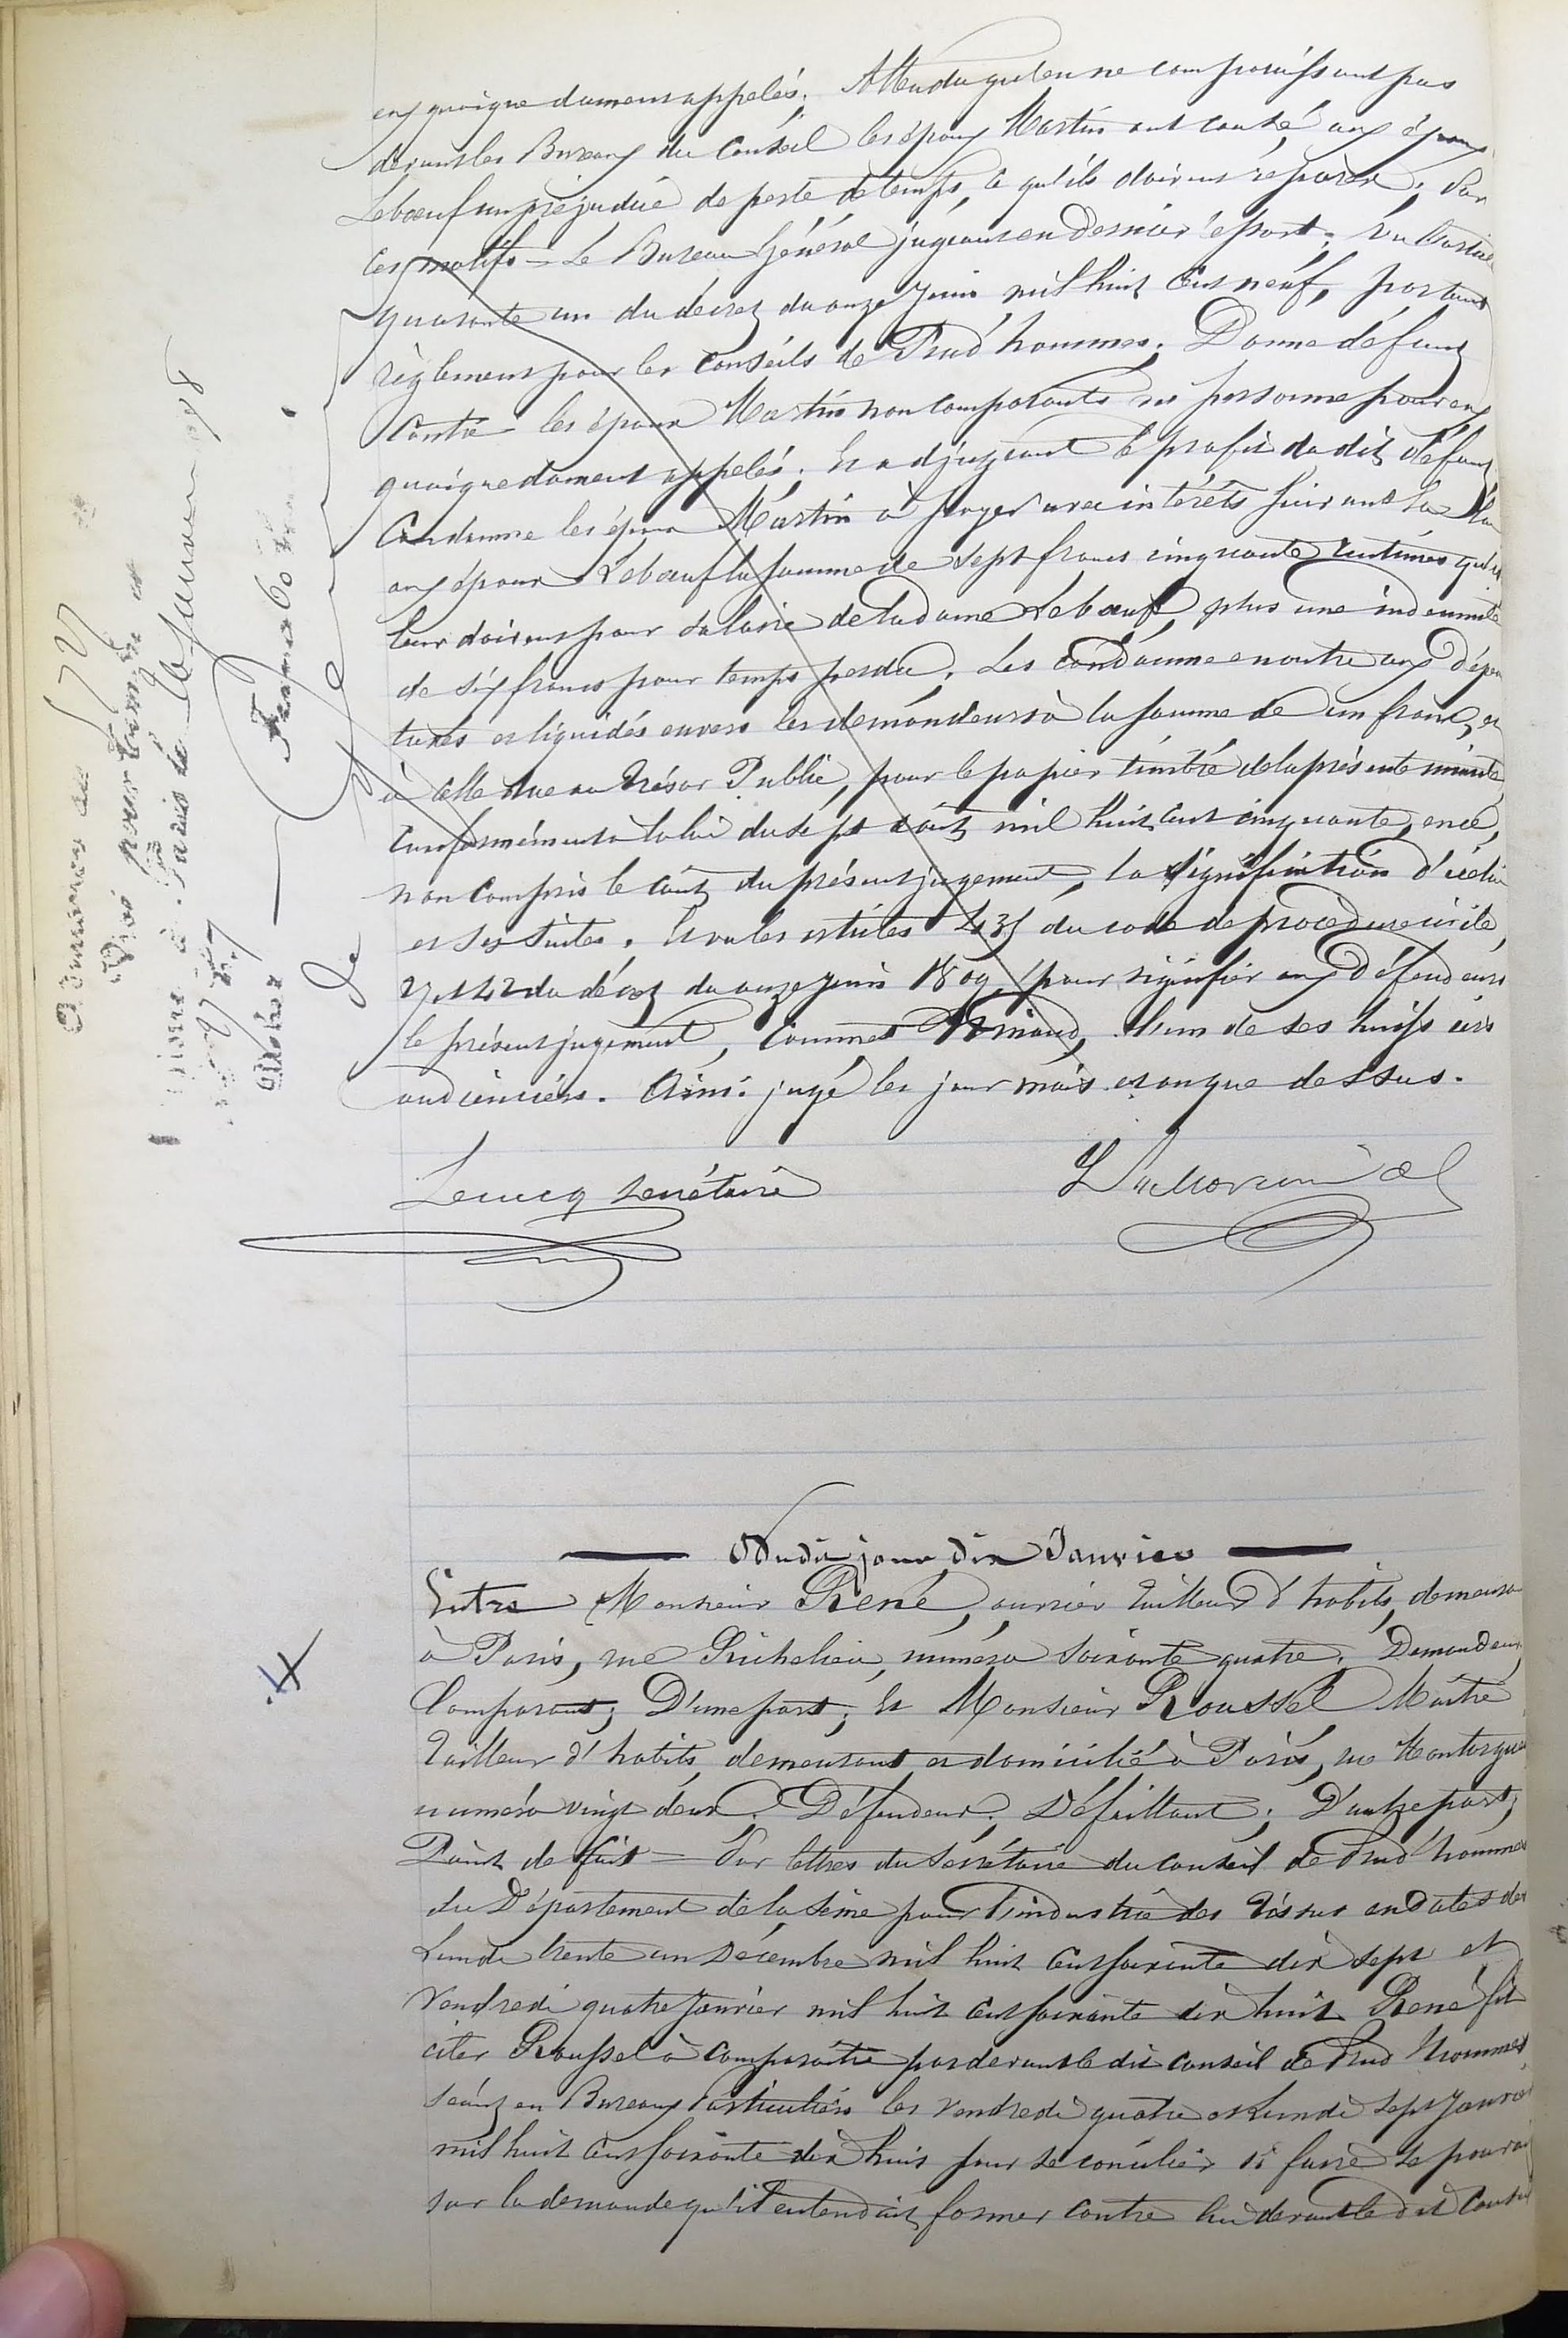 eux quoique dument appelés; Attendu qu'en ne comparaissant pas
devant les Bureaux du Conseil les époux Martin ont causé aux époux
Leboeuf un préjudice de perte de temps, ce qu'ils doivent réparer; Par
ces motifs = Le Bureau Général jugeant en Dernier réssort; Vu l'article
quarante un du décret du onze Juin mil huit cent neuf, portant
règlement pour les Conseils de Prud'hommes; Donne défaut
contre les époux Martin non comparants ni personne pour eux
quoique dument appelés; Et adjugeant le profit du dit défaut
Condamne les époux Martin à payer avec intérêts suivant la Loi
aux époux Leboeuf la somme de sept francs cinquante centimes qu'ils
leur doivent pour salaire de la dame Leboeuf, plus une indemnité
de six francs pour temps perdu; Les condamne en outre aux dépens
taxés et liquidés envers les demandeurs à la somme de un franc, et
à celle due au Trésor Public, pour le papier timbré de la présente minute,
conformément à la loi du sept août mil huit cent cinquante, ence,
non compris le coût du présent jugement, la signification d'icelui
et ses suites. Et vu les articles 435 du code de procédure civile,
27 et 42 du décret du onze Juin 1809, pour signifier aux Défendeurs
le présent jugement, Commet l'un de ses huissiers
audienciers. Ainsi jugé les jour mois et an que dessus.
Lecucq secrétaire
janvier 1878
de
Dudit jour dix Janvier
Entre Monsieur René, ouvrier tailleur d'habits, demeurant
à Paris, rue Richelieu, numéro soixante quatre; Demandeur,
Comparant; D'une part; Et Monsieur Roussel Maître
tailleur d'habits, demeurant et domicilié à Paris, rue Montorgueil
numéro vingt deux; Défendeur; Défaillant; D'autre part;
Point de fait = Par lettres du Secrétaire du Conseil de Prud'hommes
du Département de la Seine pour l'industrie des Tissus en dates des
Lundi trente un Décembre mil huit cent soixante dix sept et
Vendredi quatre Janvier mil huit cent soixante dix huit René fit
citer Roussel à comparaître par devant le dit Conseil de Prud'hommes
séant en Bureaux Particuliers les Vendredi quatre et Lundi sept Janvier
mil huit cent soixante dix huit pour se concilier si faire se pouvait
sur la demande qu'il entendait former contre lui devant le dit Conseil